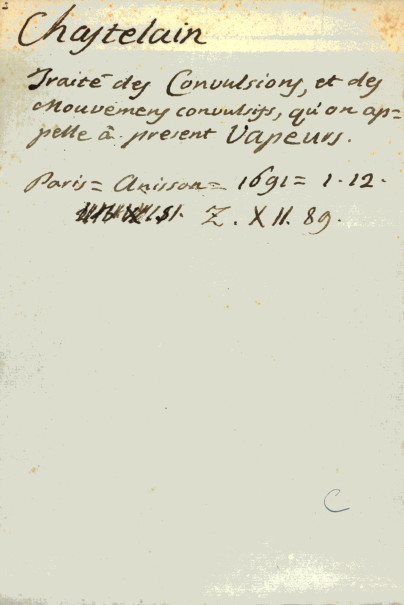 Chastelain
Traité des Convulsions, et des
Mouvemens convulsifs, qu'on ap=
pelle à present Vapeurs.
Paris = Anisson = 1691 = 1. 12.
Z. XII. 89.
C